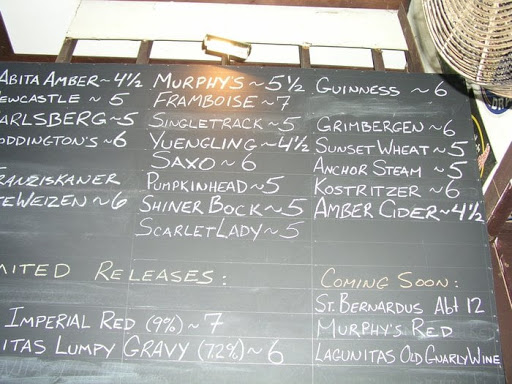 ABITA AMBER ~ 4½
NEWCASTLE ~ 5
CARLSBERG ~ 5
ODDINGTON'S ~ 6
FRANZISKANER
TEWEIZEN ~ 6
MURPHY'S ~ 5½
FRAMBOISE ~ 7
SINGLETRACK ~ 5
YUENGLING ~ 4½
SAXO ~ 6
PUMPKINHEAD ~ 5
SHINER BOCK ~ 5
SCARLET LADY ~ 5
GUINNESS ~ 6
GRIMBERGEN ~ 6
SUNSET WHEAT ~ 5
ANCHOR STEAM ~ 5
KOSTRITZER ~ 6
AMBER CIDER ~ 4½
MITED RELEASES:
IMPERIAL RED (9%) ~ 7
NITAS LUMPY GRAVY (7.2%) ~ 6
COMING SOON:
ST. BERNARDUS Abt 12
MURPHY'S RED
LAGUNITAS OLD GNARLYWINE